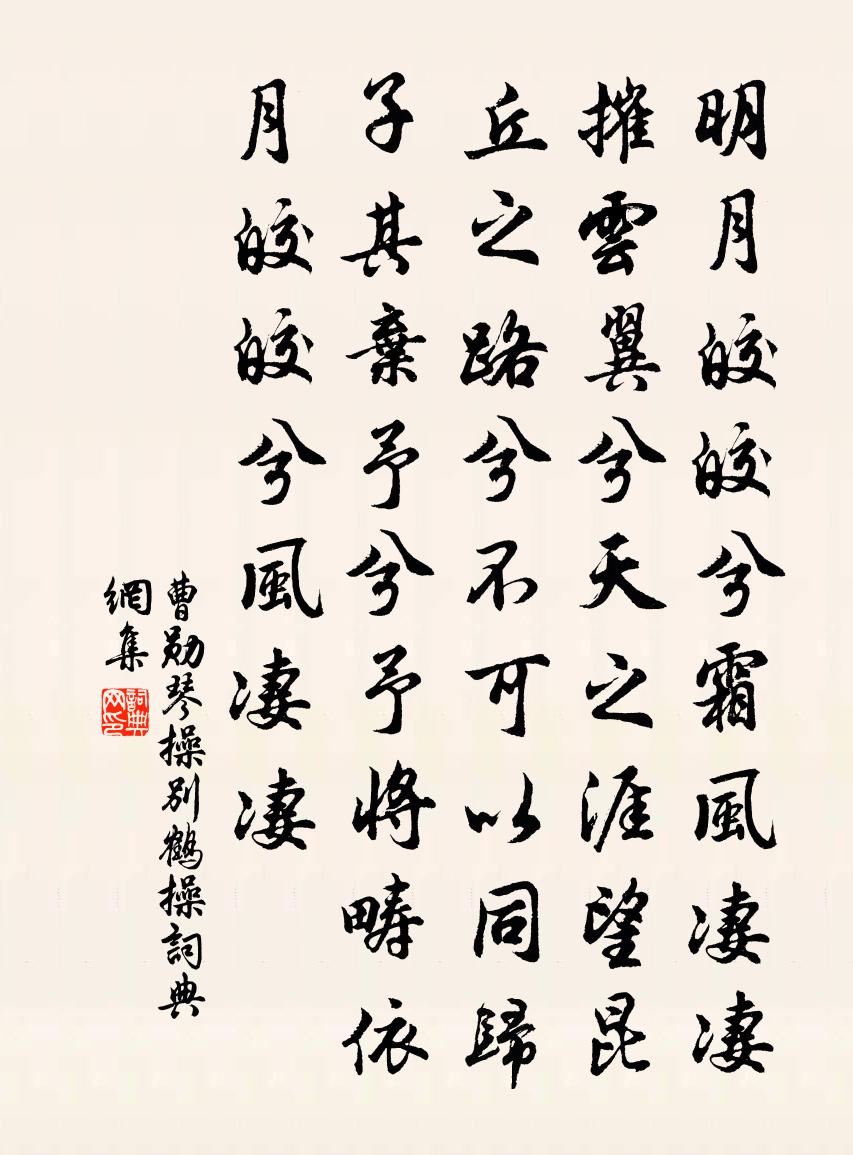 明月皎皎兮霜風凄凄
摧雲翼兮天之涯望昆
丘之路兮不可以同歸
子其棄予兮予將疇依
月皎皎兮風凄凄
曹勛琴操別鶴操詞典
網集
詞典
网印